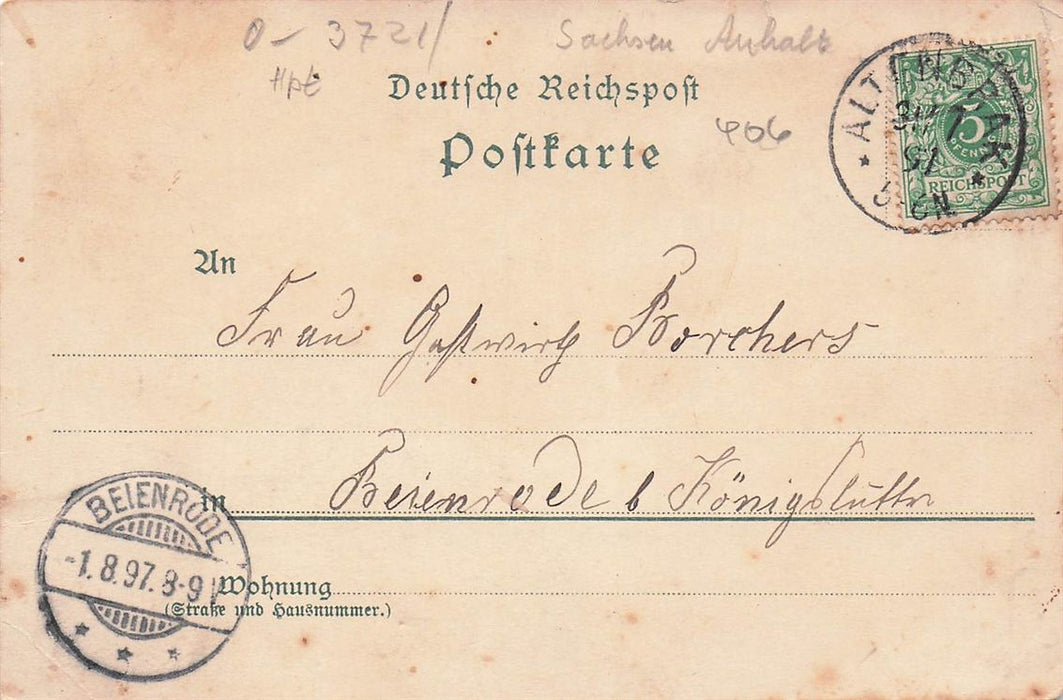 0-3721/ Sachsen Anhalt
Hpt
Deutsche Reichspost
406
Postkarte
ALTENBRAK
31/7
97
5-6N
5
PFENNIG
REICHSPOST
An
Frau Gastwirth Borchers
in Beienrode b Königslutter
BEIENRODE
-1.8.97.8-9V
Wohnung
(Straße und Hausnummer.)